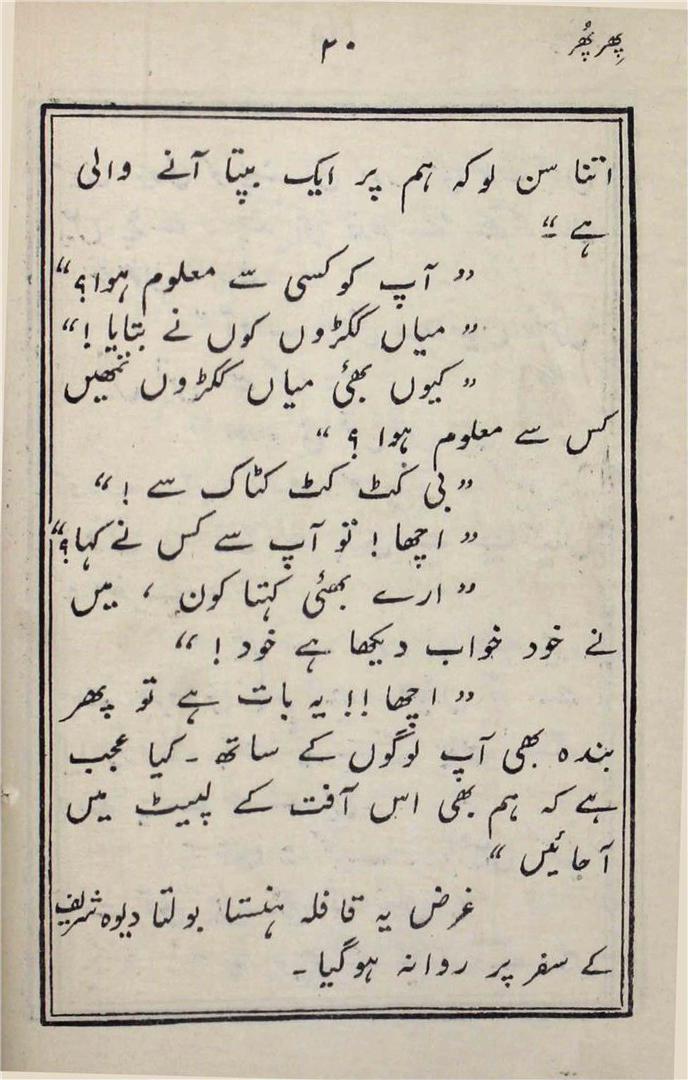 پِھر پھُر
۲۰
اتنا سن لو کہ ہم پر ایک بپتا آنے والی
ہے ۔“
” آپ کو کسی سے معلوم ہوا؟“
” میاں ککڑوں کوں نے بتایا !“
” کیوں بھئی میاں ککڑوں تمھیں
کس سے معلوم ہوا ؟ “
” بی کٹ کٹ کٹاک سے ! “
” اچھا ! تو آپ سے کس نے کہا؟“
” ارے بھئی کہتا کون ، میں
نے خود خواب دیکھا ہے خود ! “
” اچھا !! یہ بات ہے تو پھر
بندہ بھی آپ لوگوں کے ساتھ ۔ کیا عجب
ہے کہ ہم بھی اس آفت کے لپیٹ میں
آ جائیں “
غرض یہ قافلہ ہنستا بولتا دیوہ شریف
کے سفر پر روانہ ہو گیا ۔